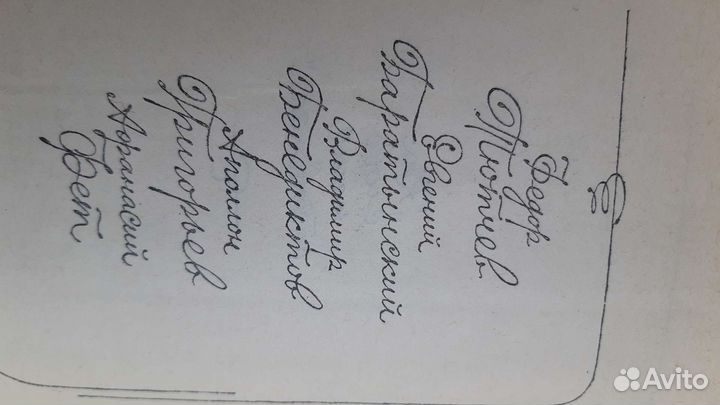 Федор
Тютчев
Евгений
Баратынский
Владимир
Бенедиктов
Аполлон
Григорьев
Афанасий
Фет
Avito